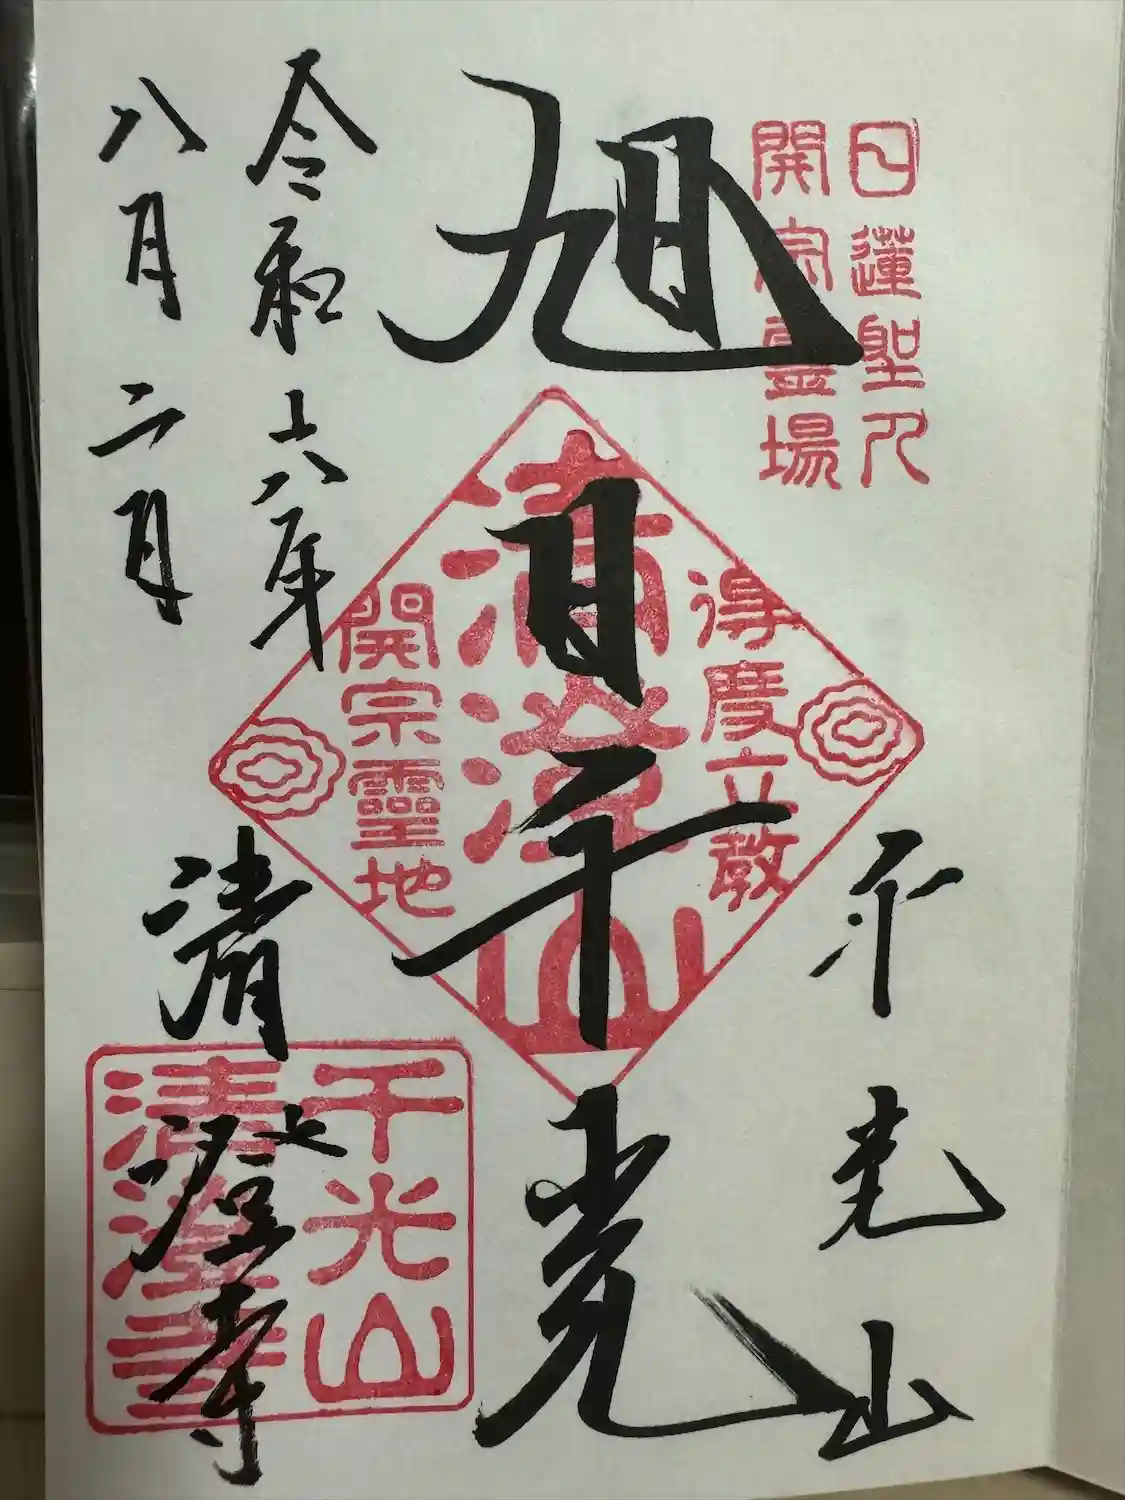 日蓮聖人
開宗霊場
千光山
旭日千光
得度立教
清澄山
開宗靈地
令和六年
八月二日
清澄寺
千光山
清澄寺